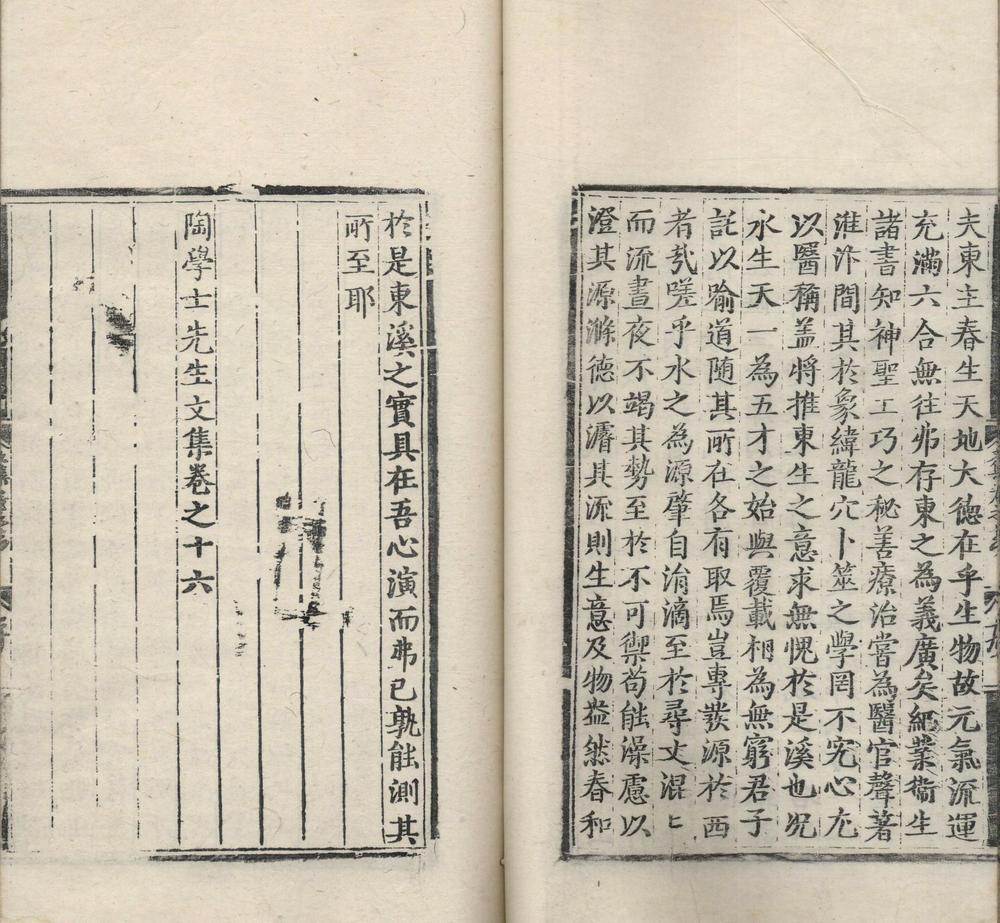 夫東主春生天地大德在乎生物故元氣流運
充滿六合無徃弗存東之為義廣矣紀業衞生
諸書知神聖工巧之秘善療治嘗為醫官聲著
淮汴間其於象緯龍穴卜筮之學罔不究心尤
以醫稱盖將推東生之意求無愧於是溪也况
水生天一為五才之始與覆載相為無窮君子
託以喻道随其所在各有取焉豈專發源於西
者㢤嗟乎水之為源肇自涓滴至於尋丈混匕
而流晝夜不竭其勢至於不可禦苟能澡慮以
澄其源滌德以濬其流則生意及物盎然春和
於是東溪之實具在吾心演而弗已孰能測其
所至耶
陶學士先生文集卷之十六